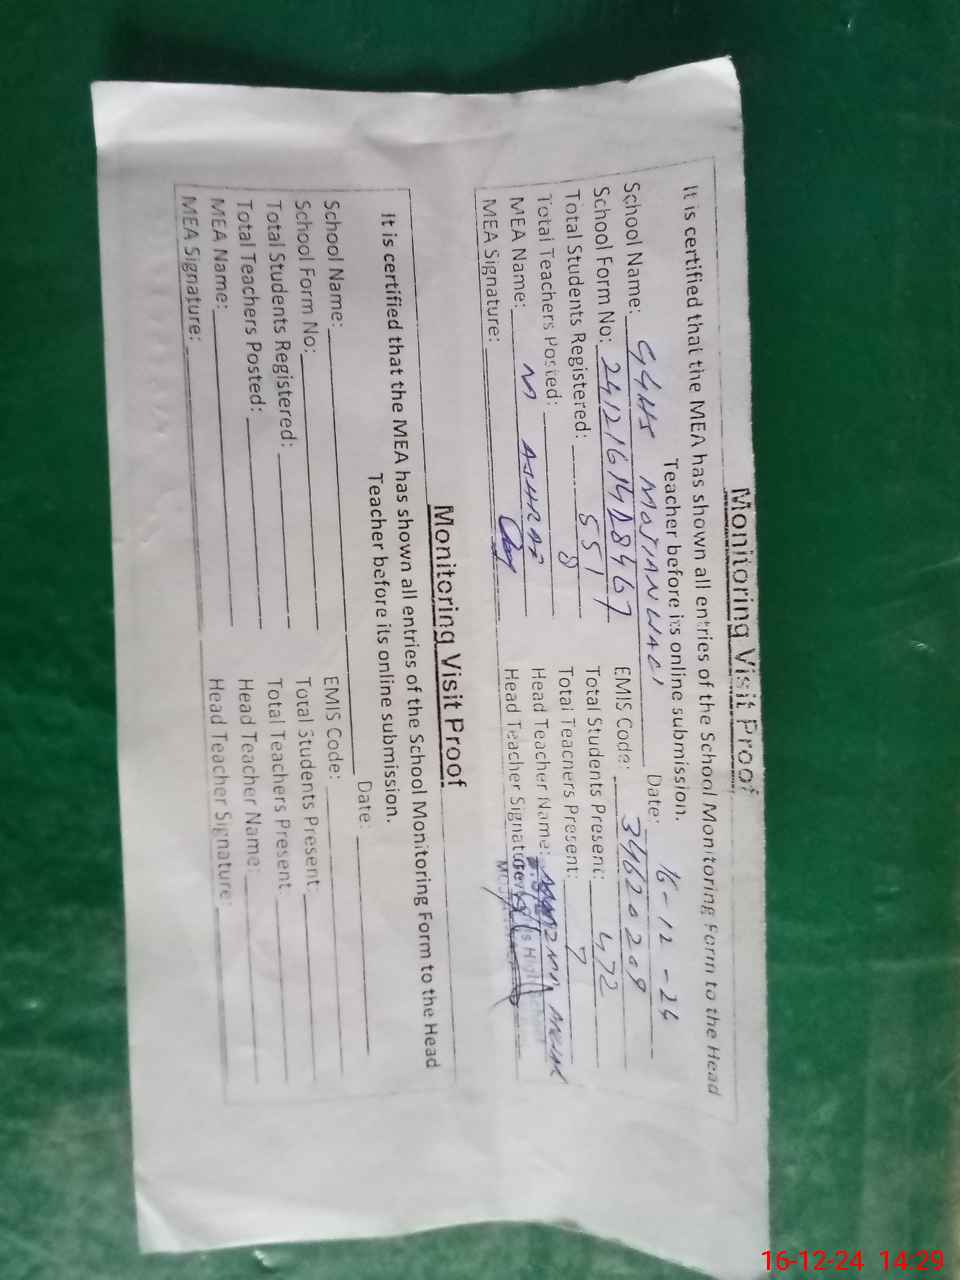 Monitoring Visit Proof
It is certified that the MEA has shown all entries of the School Monitoring Form to the Head
Teacher before its online submission.
School Name: GGHS MOJIANWALI Date: 16-12-24
School Form No: EMIS Code: 34620209
Total Students Registered: 551 Total Students Present: 472
Total Teachers Posted: 8 Total Teachers Present: 7
MEA Name: M ASHRAF Head Teacher Name:
MEA Signature: Head Teacher Signature:
Monitoring Visit Proof
It is certified that the MEA has shown all entries of the School Monitoring Form to the Head
Teacher before its online submission.
School Name: Date:
School Form No: EMIS Code:
Total Students Registered: Total Students Present:
Total Teachers Posted: Total Teachers Present:
MEA Name: Head Teacher Name:
MEA Signature: Head Teacher Signature:
16-12-24 14:29